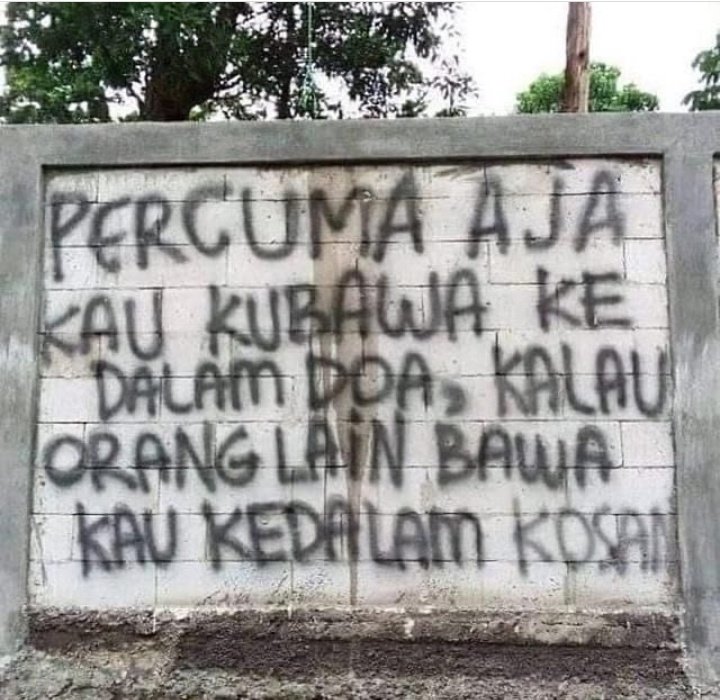 PERCUMA AJA
KAU KUBAWA KE
DALAM DOA, KALAU
ORANG LAIN BAWA
KAU KEDALAM KOSAN